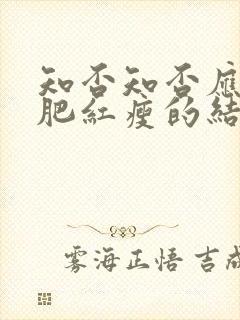 知否知否應
肥紅瘦的結
雾海正悟 吉成